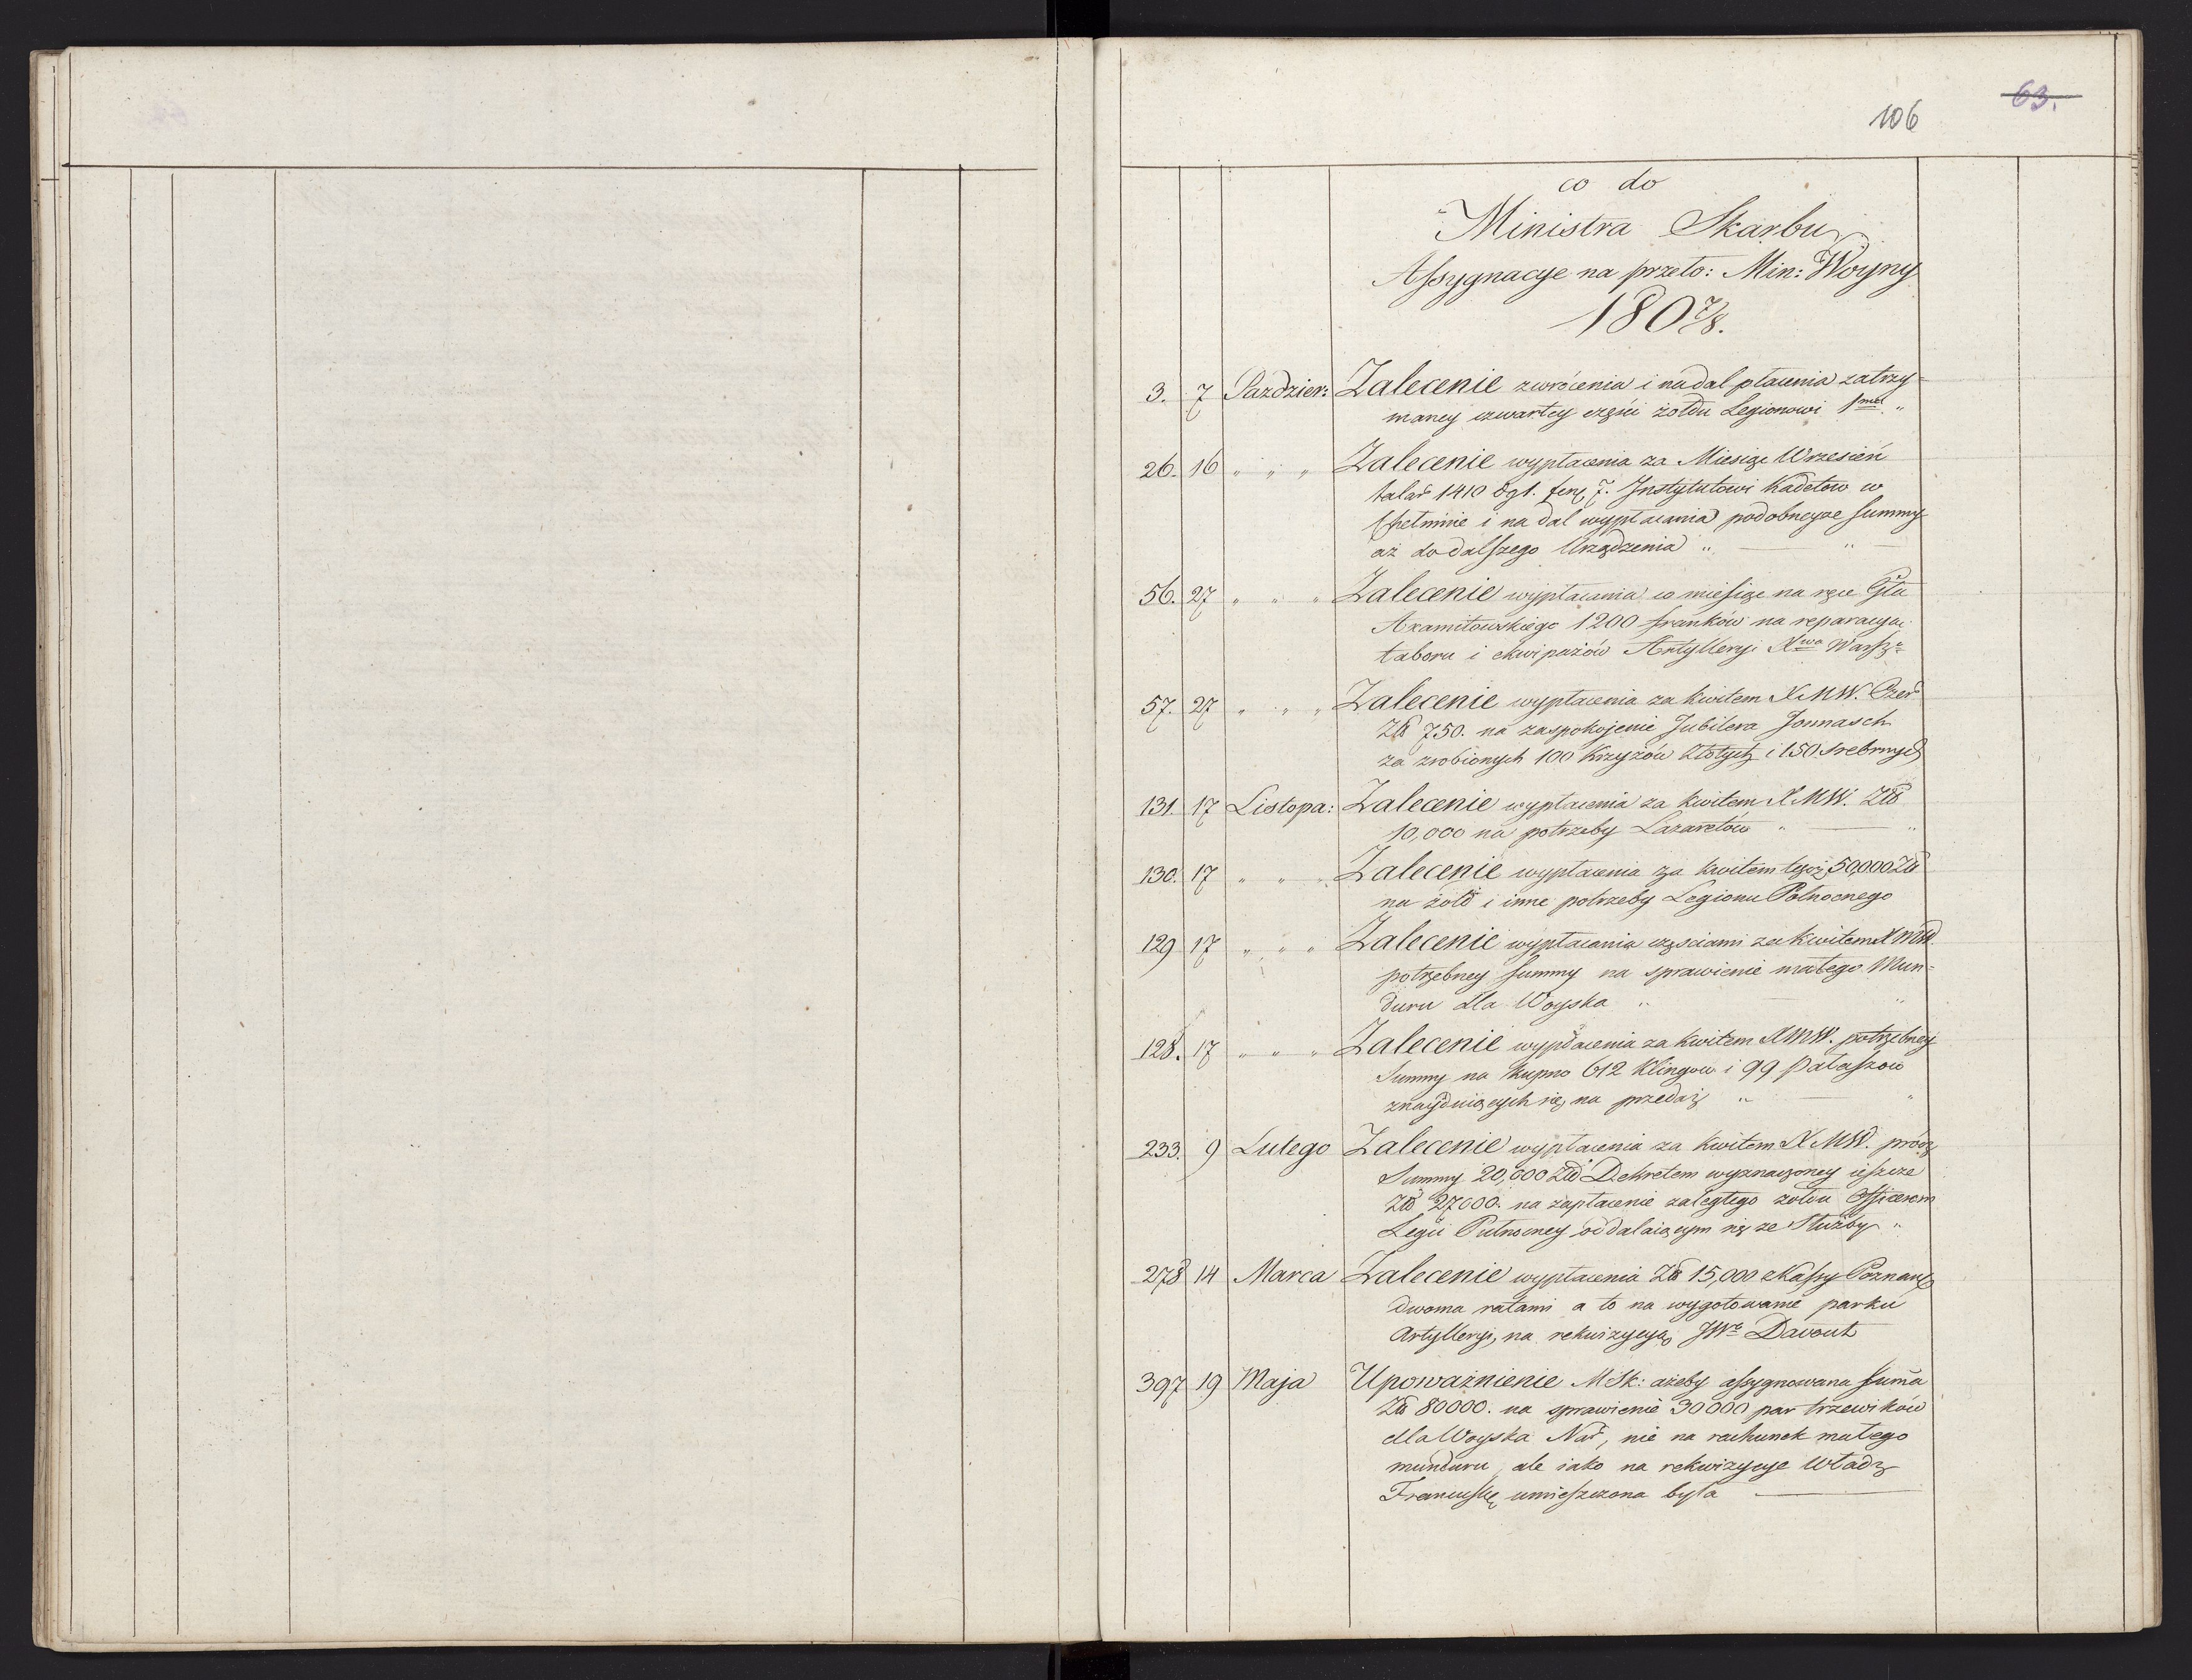 63.
106
co do
Ministra Skarbu
Assygnacye na przeło: Min: Woyny
1807/8.
3. 7 Pazdzier: Zalecenie zwrócenia i nadal płacenia zatrzy=
maney czwartey części żołdu Legionowi 1mu "
26. 16 " " " Zalecenie wypłacenia za Miesiąc Wrzesień
talar 1410 dgl. fen. 7. Instytutowi Kadetow w
Chełminie i na dal wypłacania podobneyże summy
aż do dalszego Urządzenia " — "
56. 27 " " " Zalecenie wypłacania co miesiąc na ręce Gła
Axamitowskiego 1200 franków na reparacyą
taboru i ekwipażów Artylleryi Xwa Warsz:
57. 27 " " " Zalecenie wypłacenia za kwitem XMW. Czer
Zł 750. na zaspokojenie Jubilera Jonnasch
za zrobionych 100 Krzyżów złotych i 150 srebrnych
131. 17 Listopa: Zalecenie wypłacenia za kwitem XMW. Zł
10,000 na potrzeby Lazaretów " — "
130. 17 " " " Zalecenie wypłacenia za kwitem tegoż 50,000 Zł
na żołd i inne potrzeby Legionu Połnocnego
129 17 " " " Zalecenie wypłacania częsciami za kwitem XMW
potrzebney summy na sprawienie małego Mun=
duru dla Woyska " — "
128. 17 " " " Zalecenie wypłacenia za kwitem XMW. potrzebney
Summy na kupno 612 Klingow i 99 Pałaszow
znayduiących się na przedaż " — "
233. 9 Lutego Zalecenie wypłacenia za Kwitem XMW. prócz
Summy 20,000 Zł Dekretem wyznaczoney ieszcze
Zł 27000. na zapłacenie zaległego żołdu Officerom
Legii Pułnocney oddalaiącym się ze Służby "
278 14 Marca Zalecenie wypłacenia Zł 15,000 z Kassy Poznans
dwoma ratami a to na wygotowanie parku
Artylleryi, na rekwizycyą JWo Davout
397 19 Maja Upoważnienie MSk: ażeby assygnowana summa
Zł 80000. na sprawienie 30000 par trzewików
dla Woyska Nar, nie na rachunek małego
munduru, ale iako na rekwizycye Władz
Francuskę umieszczona była —